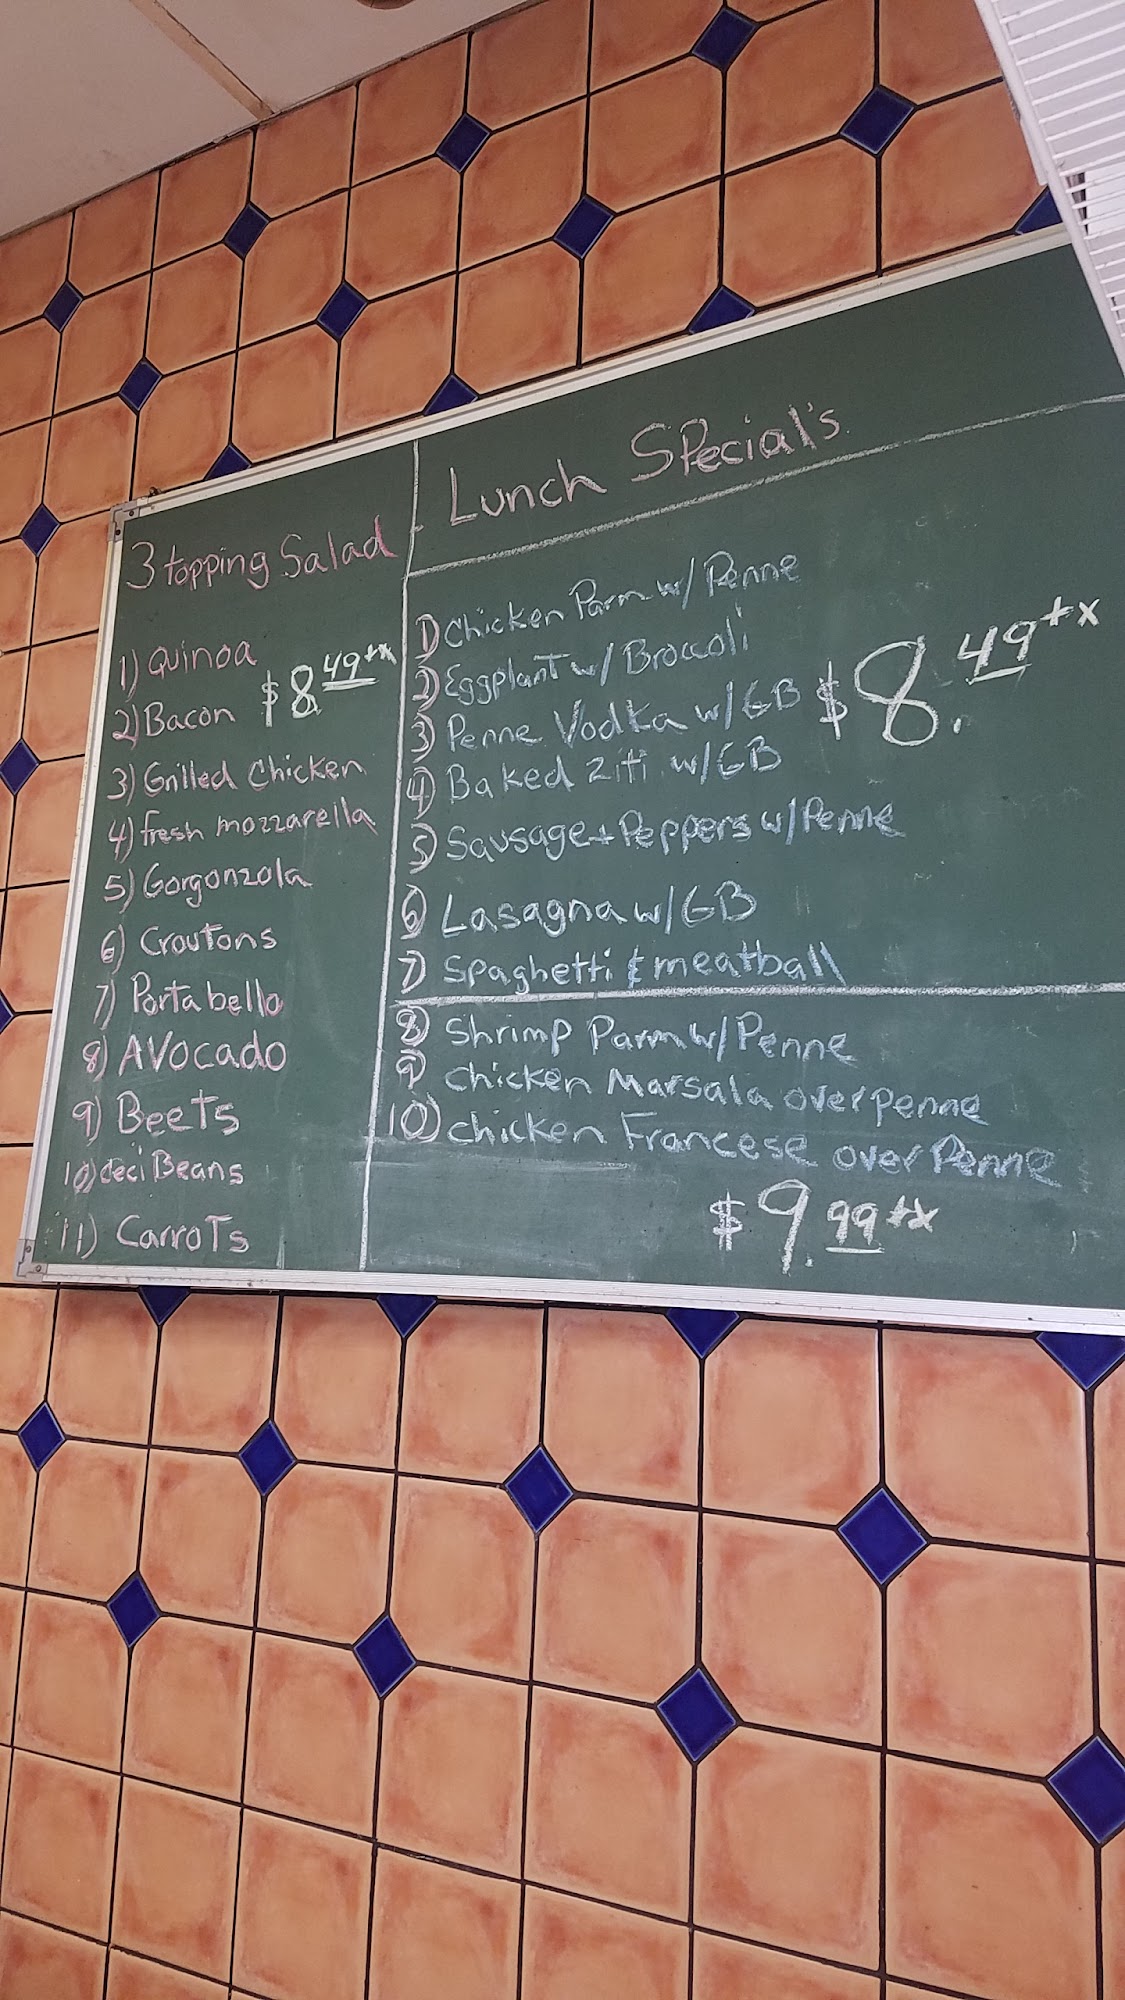 3 topping Salad
1) Quinoa
$8.49+tx
2) Bacon
3) Grilled Chicken
4) fresh mozzarella
5) Gorgonzola
6) Croutons
7) Portabello
8) AVocado
9) BeeTs
10) deci Beans
11) CarroTs
Lunch SPecial's
1) Chicken Parm w/ Penne
2) EggplanT w/ Broccoli
3) Penne Vodka w/ GB
$8.49+x
4) Baked Ziti w/ GB
5) Sausage + Peppers w/ Penne
6) Lasagna w/ GB
7) Spaghetti & meatball
8) Shrimp Parm w/ Penne
9) Chicken Marsala over penne
10) chicken Francese over Penne
$9.99+tx